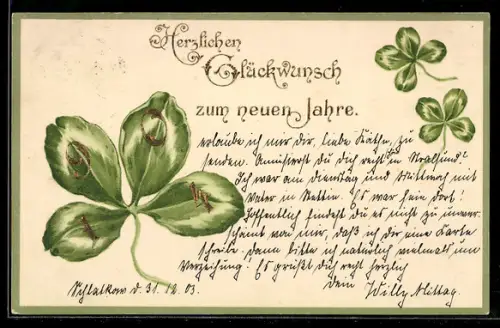 Herzlichen
Glückwunsch
zum neuen Jahre.
1 9 0 4
erlaube ich mir dir, liebe Käthe, zu
senden. Amüsirst Du dich recht in Stralsund?
Ich war am Dienstag und Mittwoch mit
Vater in Stettin. Es war fein dort!
Hoffentlich findest Du es nicht zu unver-
schämt von mir, daß ich dir eine Karte
schreibe, dann bitte ich natürlich vielmals um
Verzeihung! Es grüßt Dich recht herzlich
Dein Willy Mittag.
Schlatkow d. 31. 12. 03.